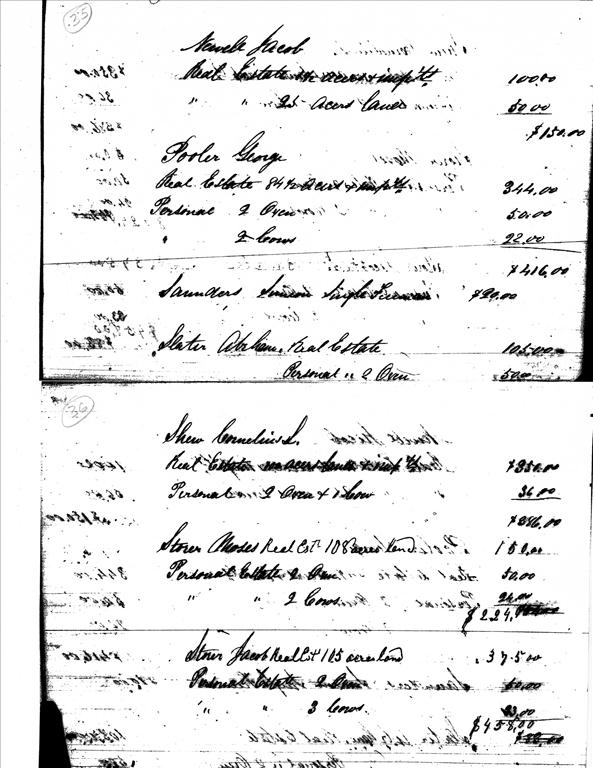 25
Newell Jacob
Real Estate acers & imp'ts 100.00
" " 25 Acers land 50.00
$150.00
Pooler George
Real Estate 84½ Acers & imp'ts 344.00
Personal 2 Oxen 50.00
" 2 Cows 22.00
$416.00
Saunders Single Freeman $20.00
Slater Abraham Real Estate 105.00
Personal " 2 Oxen 50.00
26
Shew Cornelius S.
Real Estate acers land & imp'ts $250.00
Personal 2 Oxen & 1 Cow 36.00
$286.00
Storer Moses Real Est 108 acres land 150.00
Personal Estate 2 Oxen 50.00
" " 2 Cows 24.00
$224.
Storer Jacob Real Est 105 acres land 375.00
Personal Estate 2 Oxen
" " 3 Cows. 33.00
$458.00